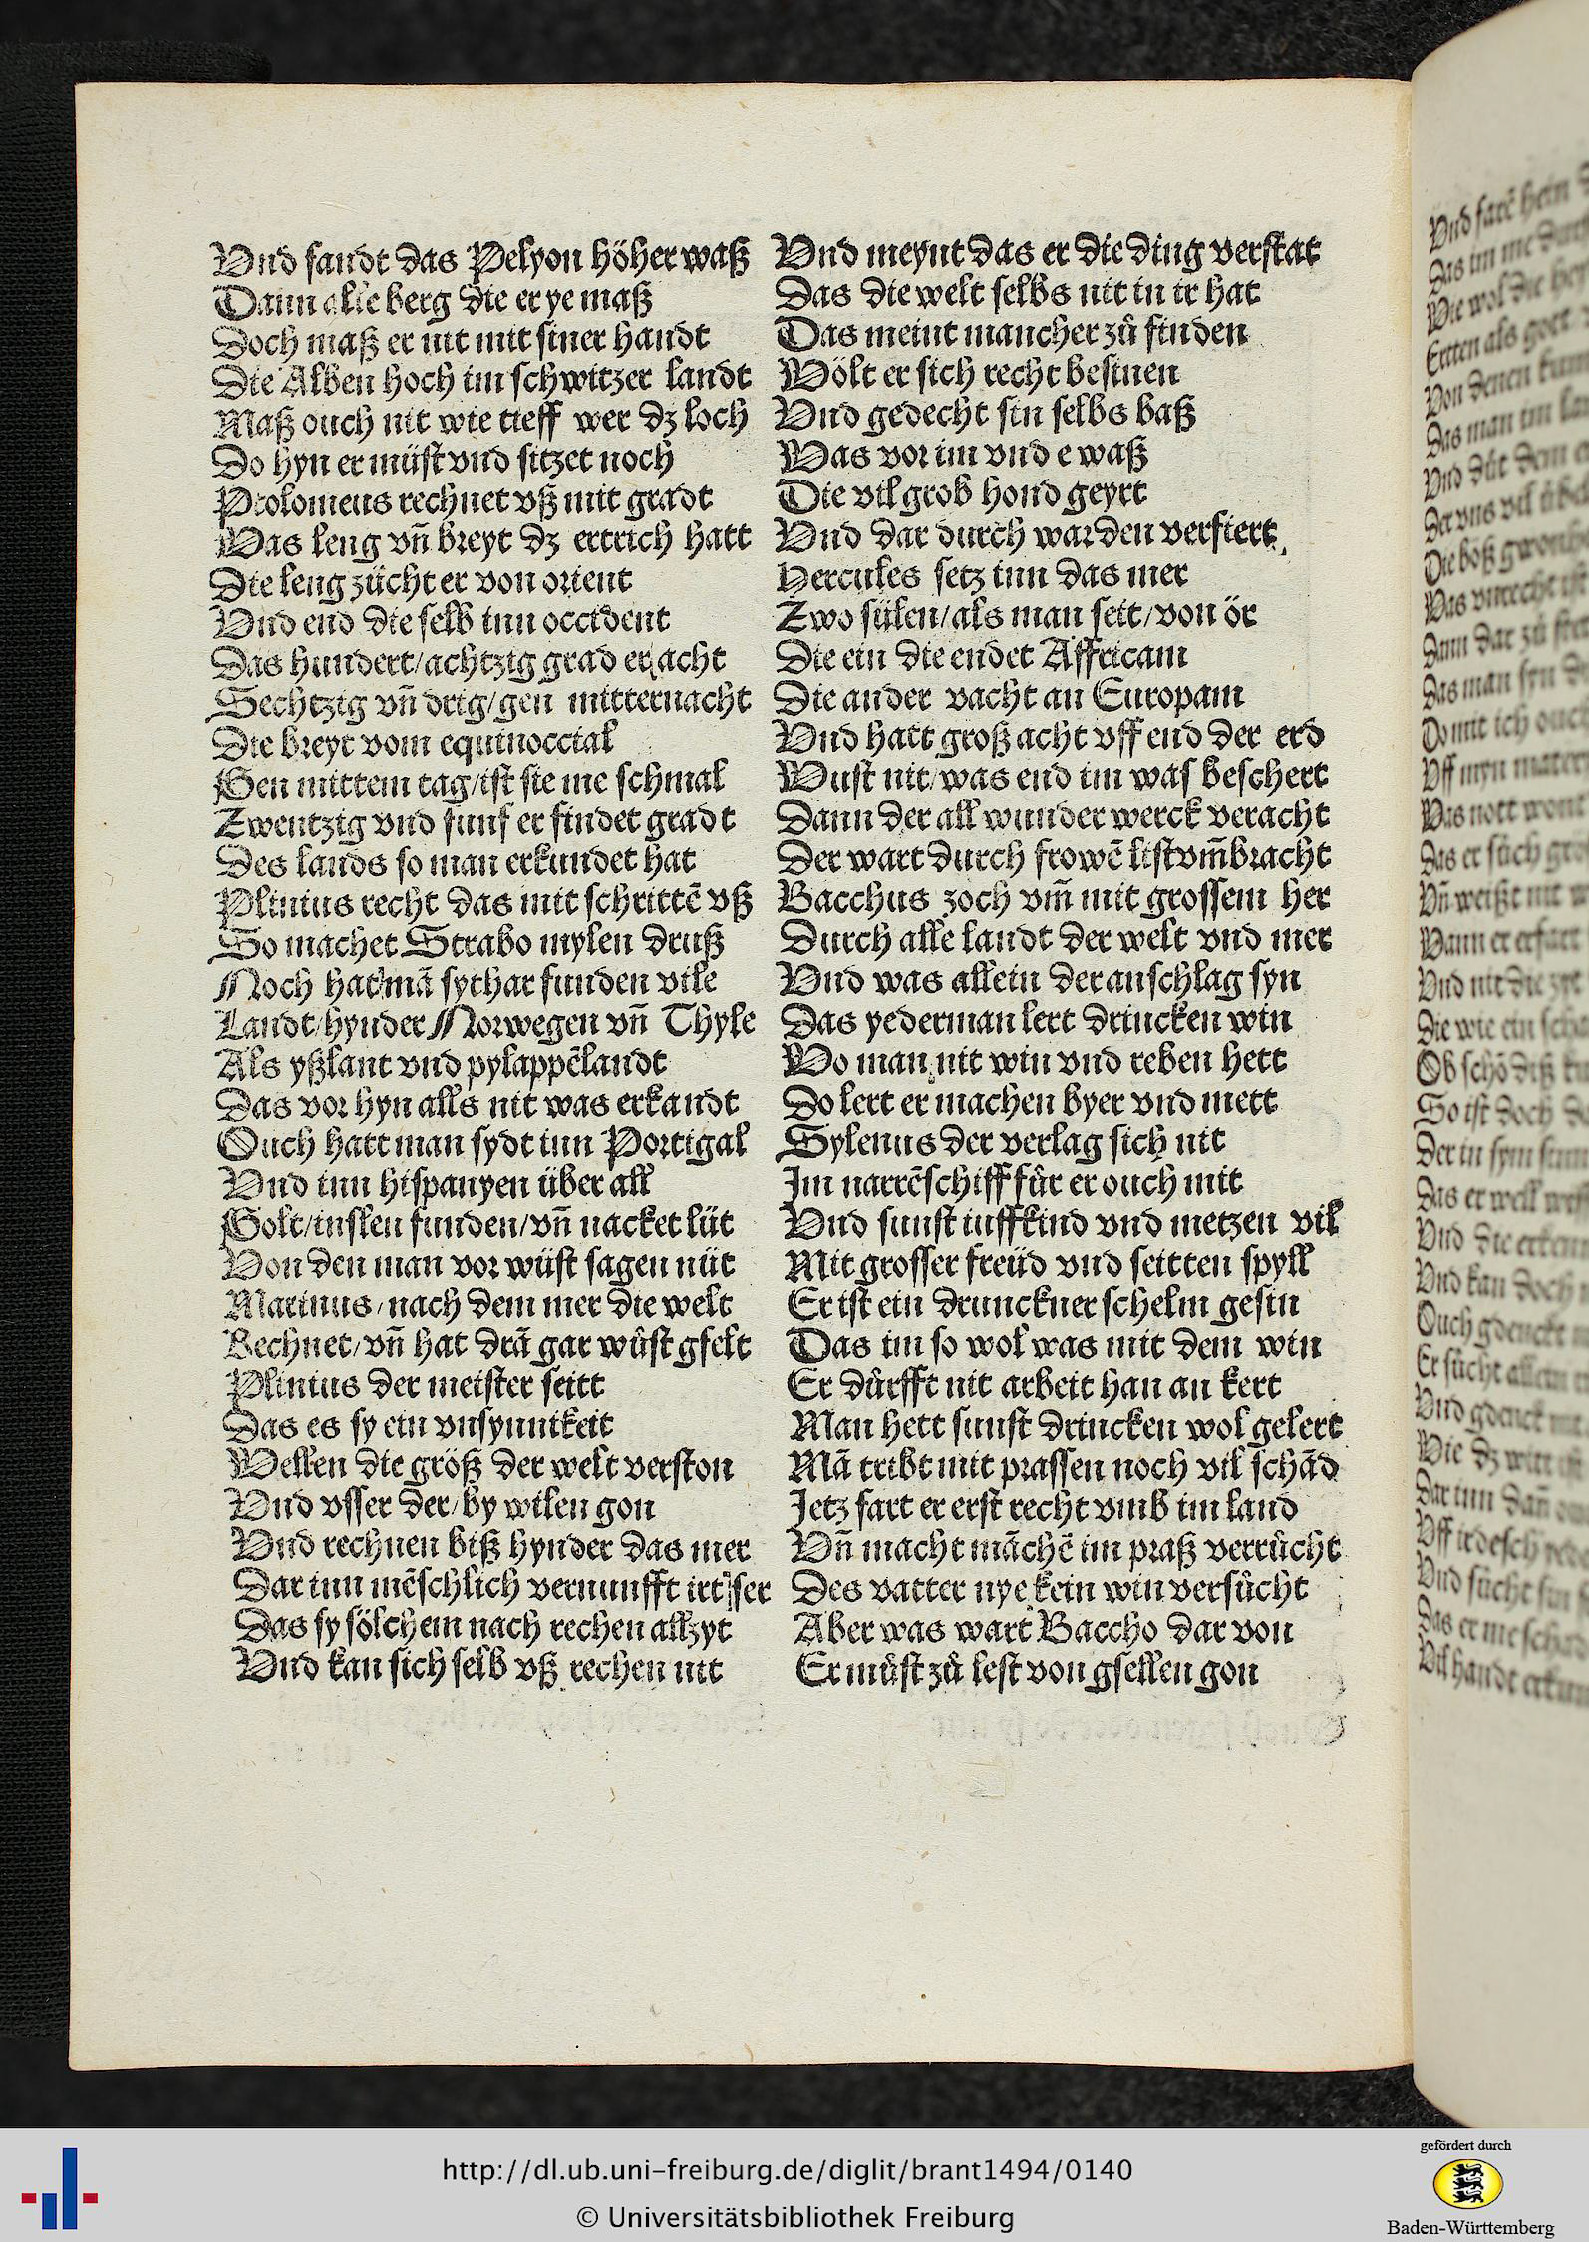 Vnd fandt das Pelyon höher waß
Dann alle berg die er ye maß
Doch maß er nit mit siner handt
Die Alben hoch im schwitzer landt
Maß ouch nit wie tieff wer dz loch
Do hyn er müst vnd sitzet noch
Ptolomeus rechnet vß mit gradt
Was leng vn̄ breyt dz ertrich hatt
Die leng zücht er von orient
Vnd end die selb inn occident
Das hundert/achtzig grad er acht
Sechtzig vn̄ drig/gen mitternacht
Die breyt vom equinoccial
Gen mittem tag/ist sie me schmal
Zwentzig vnd funf er findet gradt
Des lands so man erkundet hat
Plinius recht das mit schrittē vß
So machet Strabo mylen druß
Noch hat mā sythar funden vile
Landt/hynder Norwegen vn̄ Thyle
Als yßlant vnd pylappēlandt
Das vor hyn alls nit was erkandt
Ouch hatt man sydt inn Portigal
Vnd inn hispanyen über all
Golt/inslen funden/vn̄ nacket lüt
Von den man vor wüst sagen nüt
Marinus/nach dem mer die welt
Rechnet/vn̄ hat drā gar wůst gfelt
Plinius der meister seitt
Das es sy ein vnsynnikeit
Wellen die größ der welt verston
Vnd vsser der/by wilen gon
Vnd rechnen biß hynder das mer
Dar inn mēschlich vernunfft irt ser
Das sy sölchem nach rechen allzyt
Vnd kan sich selb vß rechen nit
Vnd meynt das er die ding verstat
Das die welt selbs nit in ir hat
Das meint mancher zů finden
Wölt er sich recht besinen
Vnd gedecht sin selbs baß
Was vor im vnd e waß
Die vil grob hond geyrt
Vnd dar durch warden verfiert
Hercules setz inn das mer
Zwo sülen/als man seit/von ör
Die ein die endet Affricam
Die ander vacht an Europam
Vnd hatt groß acht vff end der erd
Wust nit/was end im was beschert
Dann der all wunder werck veracht
Der wart durch frowē list vm̄bracht
Bacchus zoch vm̄ mit grossem her
Durch alle landt der welt vnd mer
Vnd was allein der anschlag syn
Das yederman lert drincken win
Wo man nit win vnd reben hett
Do lert er machen byer vnd mett
Sylenus der verlag sich nit
Im narrēschiff fůr er ouch mit
Vnd sunst iuffkind vnd metzen vil
Mit grosser freüd vnd seitten spyll
Er ist ein drunckner schelm gesin
Das im so wol was mit dem win
Er důrfft nit arbeit han an kert
Man hett sunst drincken wol gelert
Mā tribt mit prassen noch vil schād
Jetz fart er erst recht vmb im land
Vn̄ macht māchē im praß verrůcht
Des vatter nye kein win versůcht
Aber was wart Baccho dar von
Er můst zů lest von gsellen gon
http://dl.ub.uni-freiburg.de/diglit/brant1494/0140
© Universitätsbibliothek Freiburg
gefördert durch
Baden-Württemberg